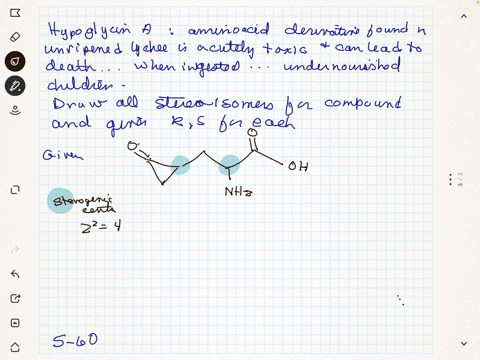 Hypoglycin A : aminoacid derivative found n
unripened lychee is acutely toxic & can lead to
death... when ingested ... undernourished
children.
Draw all stereoisomers for compound
and given R,S for each
Given
O
O
OH
NH2
Sterogenic
2² = 4
5-60
3 / 3